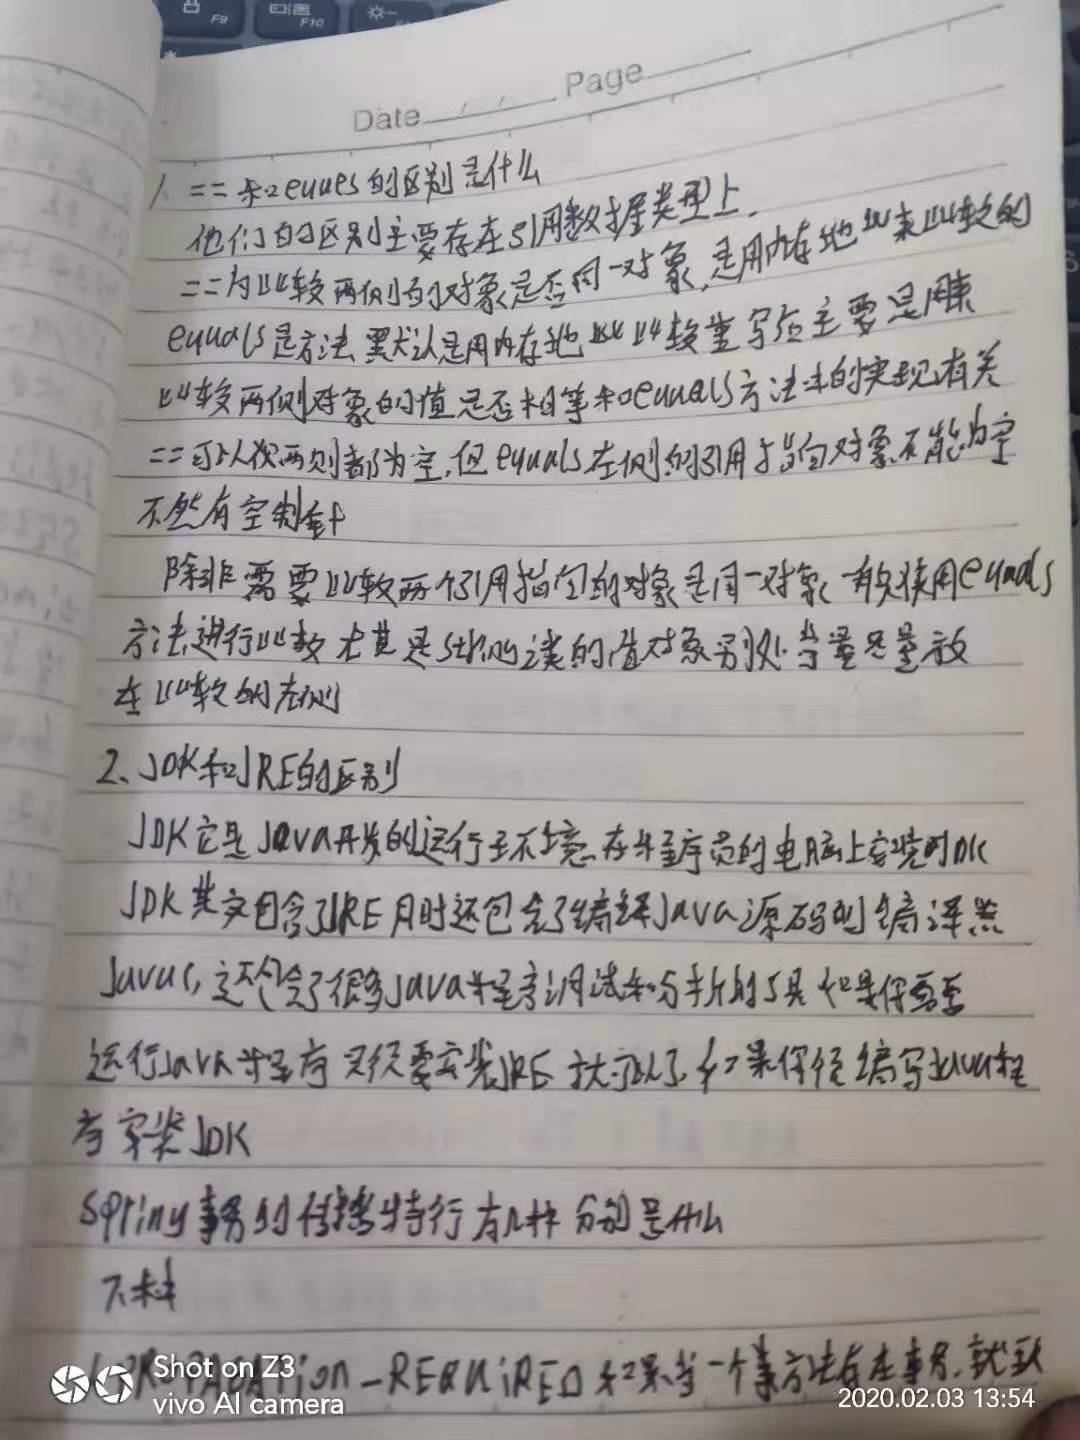 F9
F10
Date / / Page
1 == 和equals的区别是什么
他们的区别主要存在引用数据类型上.
==为比较两侧的对象是否同一对象,是用内存地址来比较的
equals是方法 默认是用内存地址比较重写后主要是用来
比较两侧对象的值是否相等和equals方法的实现有关
==可以两侧都为空,但equals左侧的引用指向对象不能为空
不然有空制针
除非需要比较两个引用指向的对象是同一对象 使用equals
方法进行比较尤其是 类的值对象 常量尽量放
在比较的左侧
2、JDK和JRE的区别
JDK它是Java开发的运行环境,在程序员的电脑上安装的JDK
JDK其实包含了JRE同时还包含了编译Java源码的编译器
Javac,还包含了很多Java程序调试和分析的工具 如果你需要
运行Java程序 只需要安装JRE就可以了.如果你编写Java程
序 安装JDK
Spring事务的传播特行有几种 分别是什么
7种
PROPAGATION_REQUIRED 如果当一个事方法存在事务,就
Shot on Z3
vivo AI camera
2020.02.03 13:54